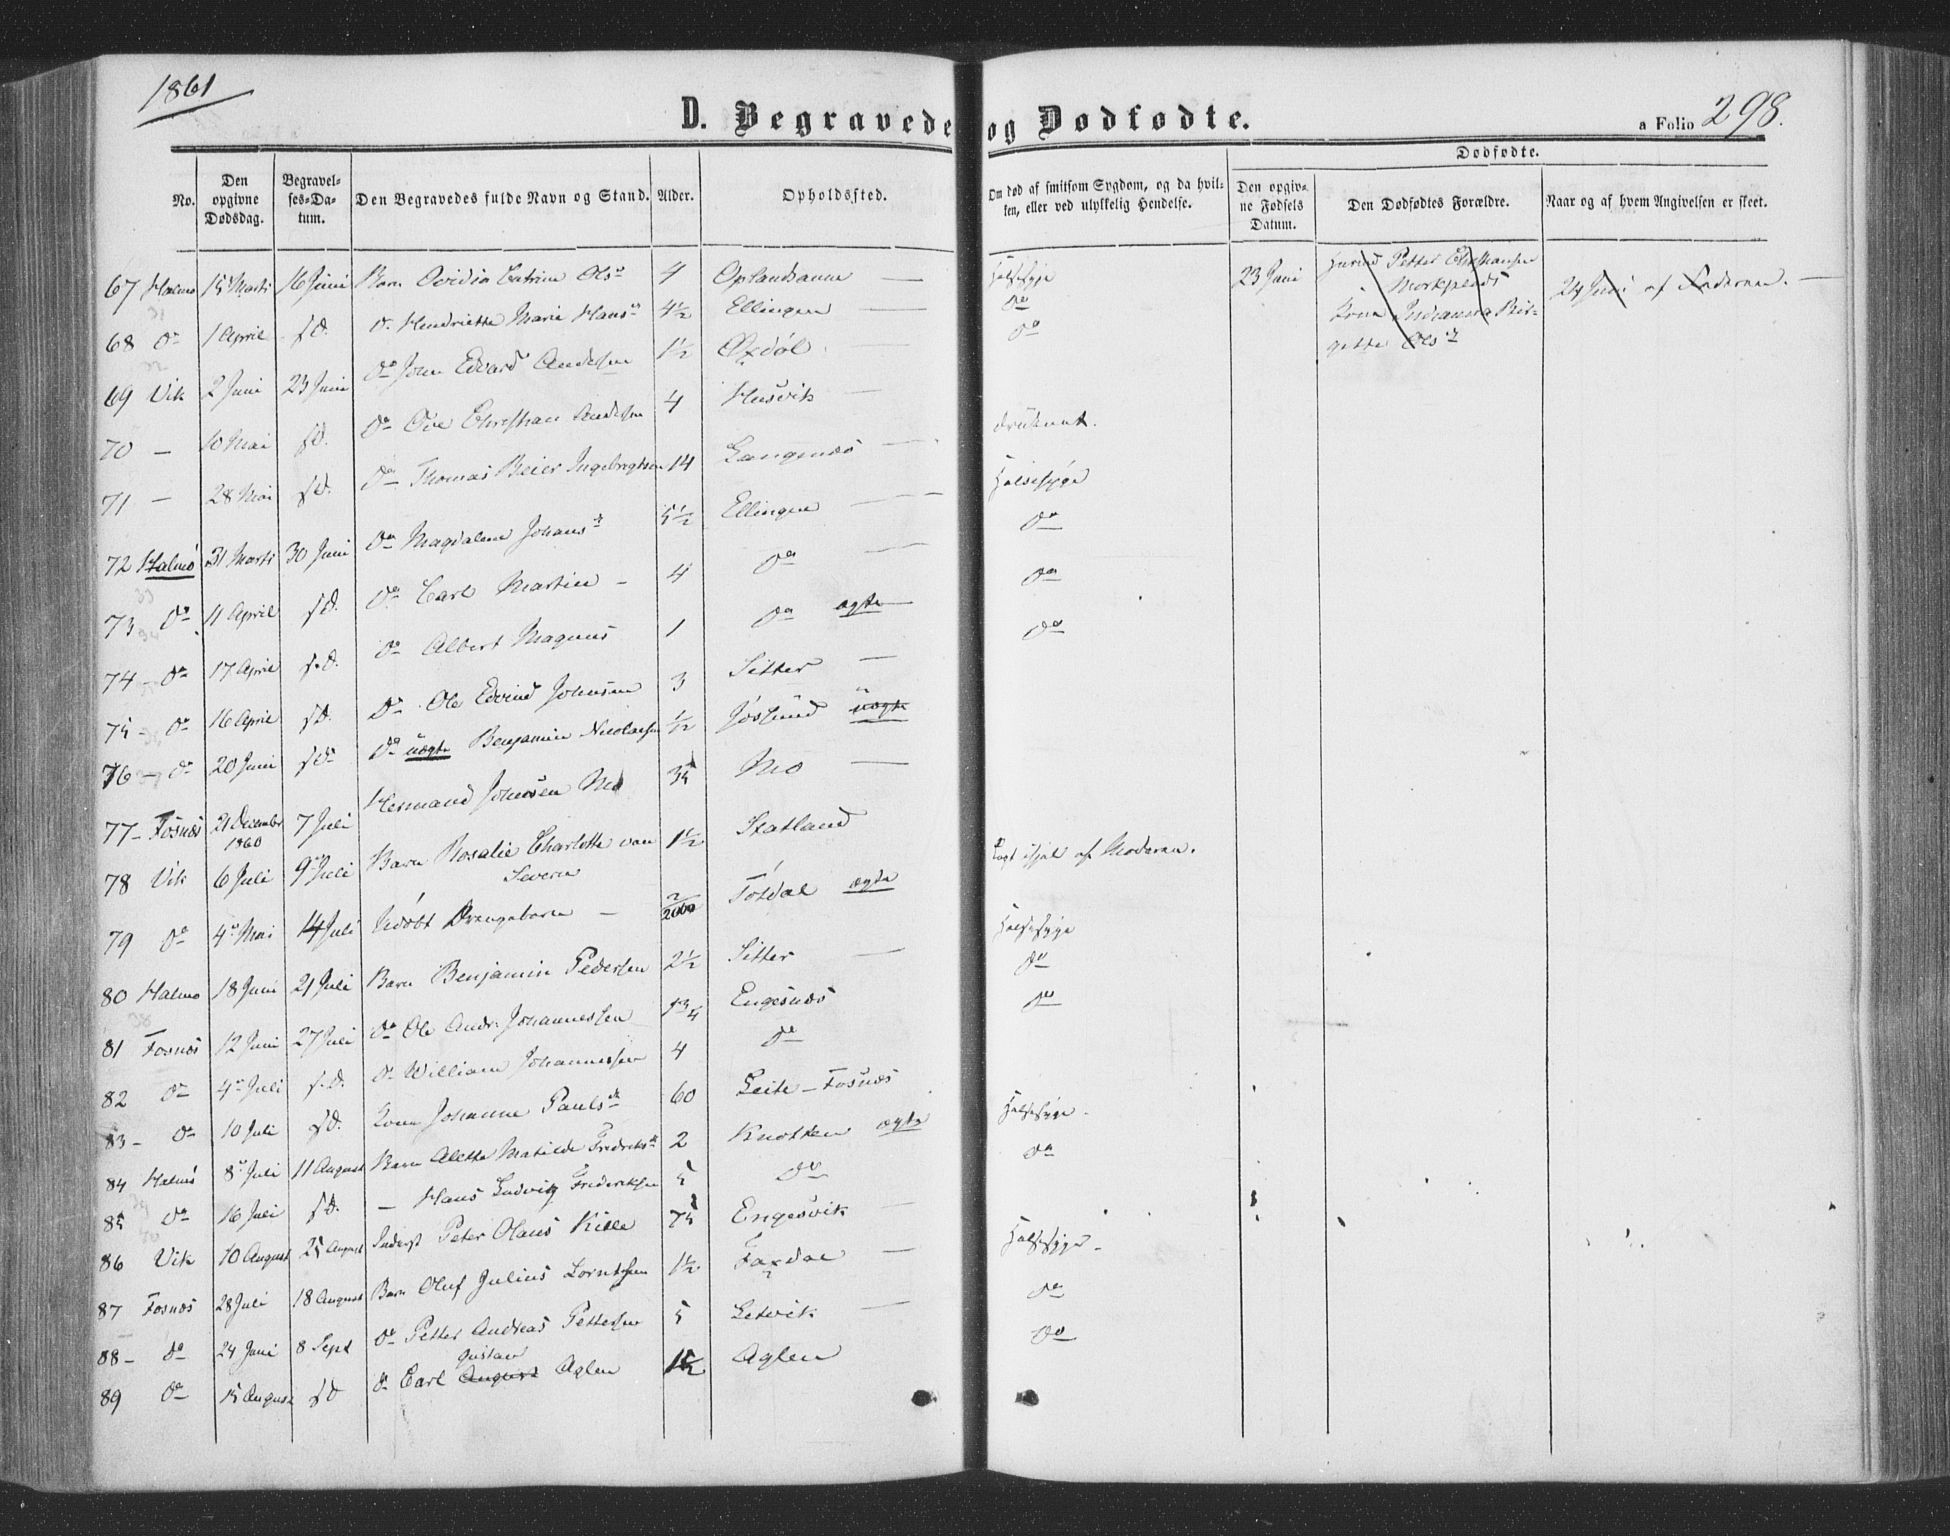 1861
D. Begravede og Dødfødte.
a Folio 298.
Dødfødte.
No. Den opgivne Dødsdag. Begravelses-Datum. Den Begravedes fulde Navn og Stand. Alder. Opholdssted. Om død af smitsom Sygdom, og da hvilken, eller ved ulykkelig Hendelse. Den opgivne Fødsels Datum. Den Dødfødtes Forældre. Naar og af hvem Angivelsen er skeet.
67 Halmø 15 Marts 16 Juni Barn Ovidia Catrine Olsdr 4 Halsesyge 23 Juni Petter Christiansen
24 Juni af Faderen.
68 do 1 April s.d. do Hendriette Marie Hansdr 4½ Ellingen do
69 Vik 2 Juni 23 Juni do John Edvard Andersen 1½ Oxdøl do
70 — 10 Mai s.d. do Ove Christian Andersen 4 Husvik
druknet.
71 — 28 Mai s.d. do Thomas Beier Ingebregtsen 14 Langenæs Halsesyge
72 Halmø 31 Marts 30 Juni do Magdalene Johansdr 5½ Ellingen do
73 do 11 April s.d. do Carl Martin 4 do do
74 do 17 April s.d. do Albert Magnus 1 do ægte do
75 do 16 April s.d. do Ole Edvind Johnsen 3 Sitter
76 do 20 Juni s.d. do uægte Benjamin Nicolaisen ½ Jøssund uægte
77 Fosnæs 21 December 1860 7 Juli Hermand Johnsen Mo 35 Mo
78 Vik 6 Juli 9 Juli Barn Rosalie Charlotte von Severin 1½ Statland ihjel af Moderen.
79 do 4 Mai 14 Juli Udøbt Drengebarn Totdal ægte
80 Halmø 18 Juni 21 Juli Barn Benjamin Pedersen 2½ Sitter Halsesyge
81 Fosnæs 12 Juni 27 Juli do Ole Andr. Johannessen 1¾ Engesnæs do
82 do 4 Juli s.d. do William Johannessen 4 do do
83 do 10 Juli s.d. Kone Johanne Paulsdr 60 Leite - Fosnæs
84 Halmø 8 Juli 11 August Barn Alette Matilde Fredriksdr 2 Knotten ægte Halsesyge
85 do 16 Juli s.d. — Hans Ludvig Frederiksen 5 do do
86 Vik 10 August 25 August Inderst Peter Olaus Kille 75 Engesvik
87 Fosnæs 28 Juli 18 August Barn Oluf Julius Lorntsen 1½ Faxdal Halsesyge
88 do 24 Juni 8 Sept do Petter Andreas Pettersen 5 Setvik do
89 do 15 August s.d. do Carl August Gustav Aglen 1½ Aglen do